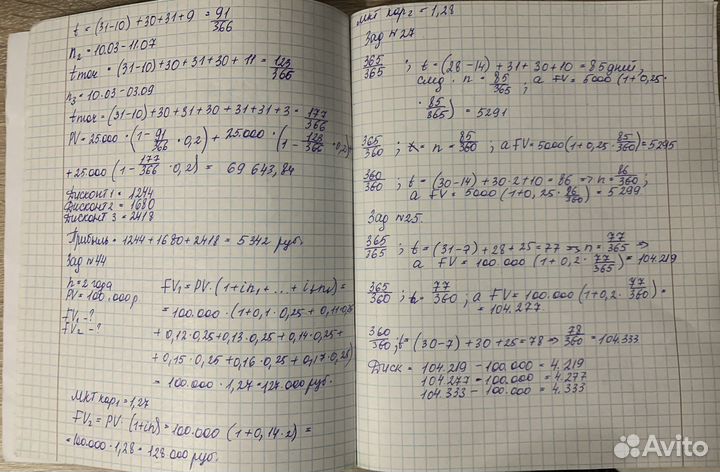 t = (31-10) + 30 + 31 + 9 = 91/366
n₂ = 10.03 - 11.07
tточ = (31-10) + 30 + 31 + 30 + 11 = 123/366
n₃ = 10.03 - 03.09
tточ = (31-10) + 30 + 31 + 30 + 31 + 31 + 3 = 177/366
PV = 25.000 · (1 - 91/366 · 0,2) + 25.000 · (1 - 123/366 · 0,2) +
+ 25.000 (1 - 177/366 · 0,2) = 69 643,84
Дисконт 1 = 1244
Дисконт 2 = 1680
Дисконт 3 = 2418
Прибыль = 1244 + 1680 + 2418 = 5342 руб.
Зад №44
n = 2 года
PV = 100.000 р.
FV₁ - ?
FV₂ - ?
FV₁ = PV · (1 + in₁ + ... + iₙnₙ) =
= 100.000 · (1 + 0,1 · 0,25 + 0,11 · 0,25
+ 0,12 · 0,25 + 0,13 · 0,25 + 0,14 · 0,25 +
+ 0,15 · 0,25 + 0,16 · 0,25 + 0,17 · 0,25)
= 100.000 · 1,27 = 127.000 руб.
Мкт нар₁ = 1,27
FV₂ = PV · (1 + in) = 100.000 (1 + 0,14 · 2) =
= 100.000 · 1,28 = 128 000 руб.
Мкт нар₂ = 1,28
Зад №27
365/365 ; t = (28-14) + 31 + 30 + 10 = 85 дней,
след. n = 85/365 ; а FV = 5000 (1 + 0,25 ·
· 85/365) = 5291
365/360 ; n = 85/360 ; а FV = 5000 (1 + 0,25 · 85/360) = 5295
360/360 ; t = (30-14) + 30 · 2 + 10 = 86 => n = 86/360 ;
а FV = 5000 (1 + 0,25 · 86/360) = 5299
Зад №25.
365/365 ; t = (31-7) + 28 + 25 = 77 => n = 77/365 =>
а FV = 100.000 (1 + 0,2 · 77/365) = 104.219
365/360 ; n = 77/360 , а FV = 100.000 (1 + 0,2 · 77/360) =
= 104.277
360/360 ; t = (30-7) + 30 + 25 = 78 => 78/360 = 104.333
Диск = 104.219 - 100.000 = 4.219
104.277 - 100.000 = 4.277
104.333 - 100.000 = 4.333
Avito